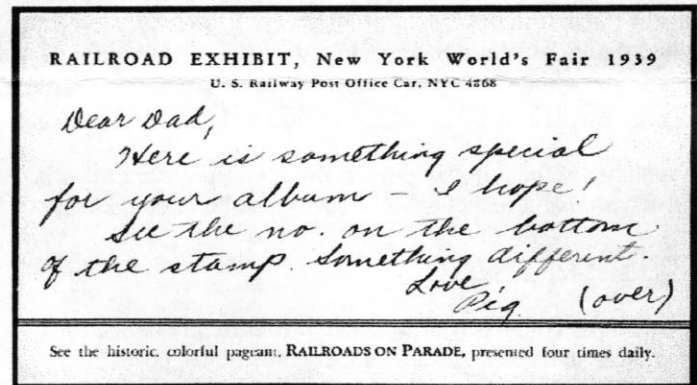 RAILROAD EXHIBIT, New York World's Fair 1939
U. S. Railway Post Office Car, NYC 4868
Dear Dad,
Here is something special
for your album – I hope!
See the no. on the bottom
of the stamp. Something different.
Love
Pig (over)
See the historic, colorful pageant, RAILROADS ON PARADE, presented four times daily.